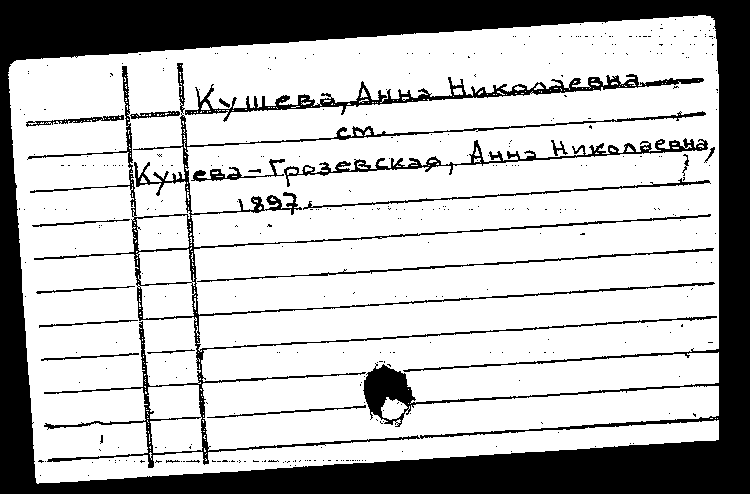 Кушева, Анна Николаевна
см.
Кушева-Грозевская, Анна Николаевна,
1897.